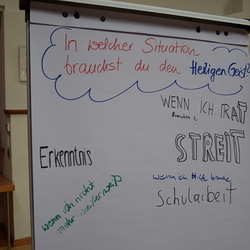 In welcher Situation
brauchst du den Heiligen Geist?
WENN ICH RAT
Brauche
Erkenntnis
STREIT
wenn ich Hilfe brauche
Schularbeit
wenn ich nicht
mehr weiter weiß